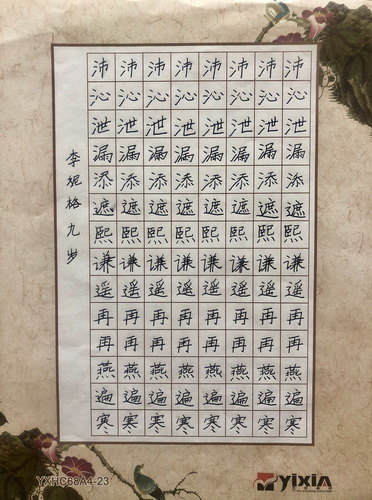 沛沛沛沛沛沛沛沛
沁沁沁沁沁沁沁沁
泄泄泄泄泄泄泄泄
漏漏漏漏漏漏漏漏
添添添添添添添添
遮遮遮遮遮遮遮遮
熙熙熙熙熙熙熙熙
谦谦谦谦谦谦谦谦
遥遥遥遥遥遥遥遥
再再再再再再再再
再再再再再再再再
燕燕燕燕燕燕燕燕
遍遍遍遍遍遍遍遍
寒寒寒寒寒寒寒寒
李妮格九岁
YXHC68A4-23
yixin